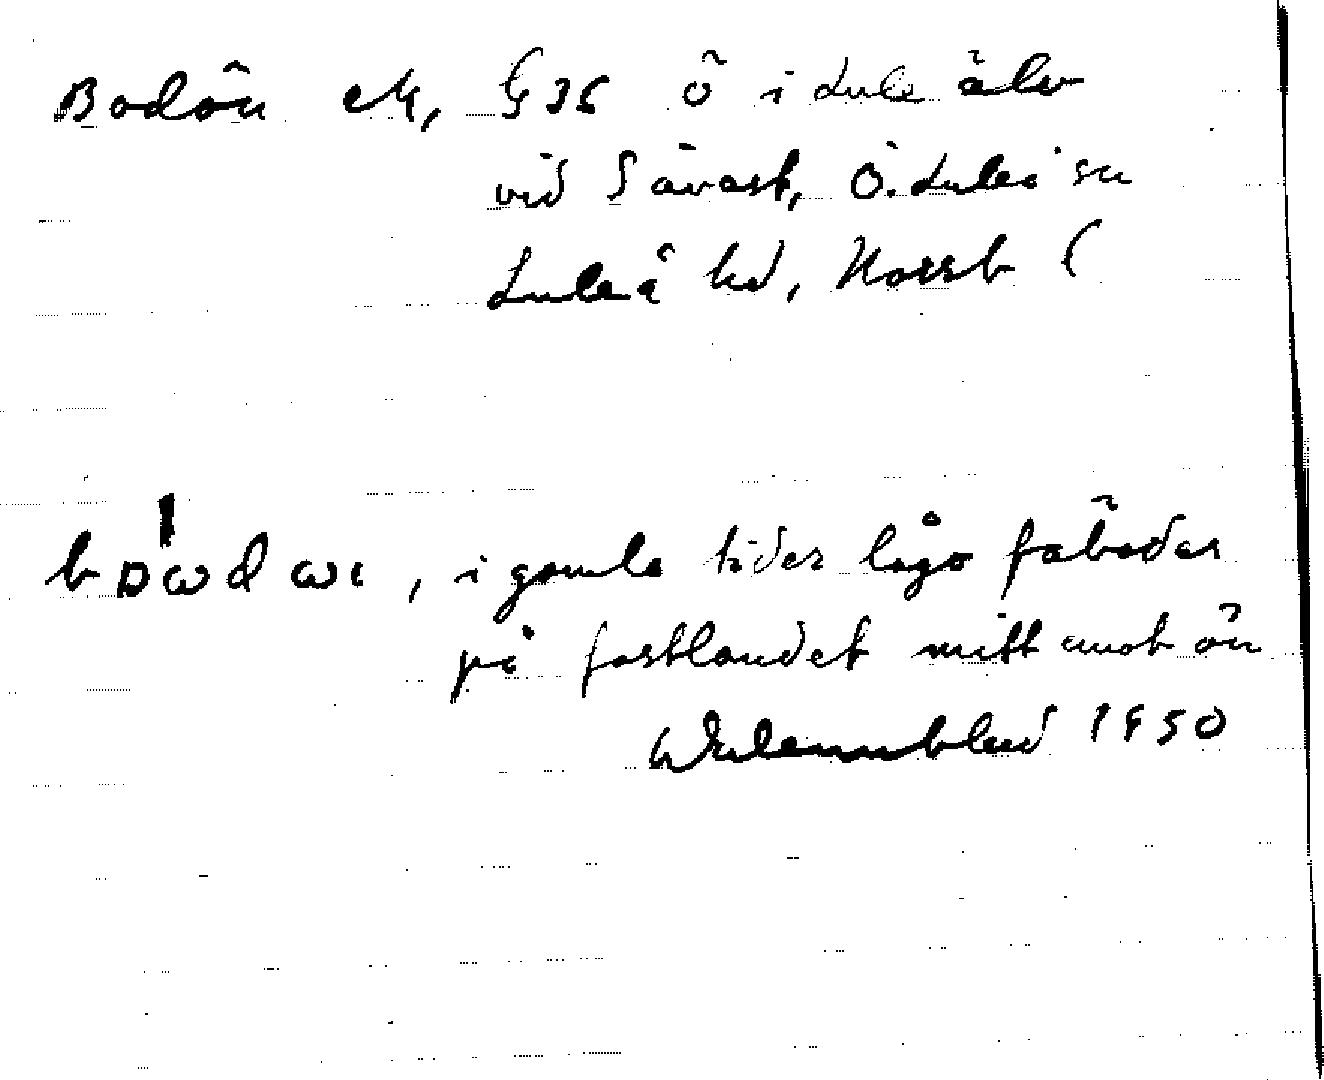 Bodön eM, G36 ö i Lule älv
vid Sävast, Ö. Luleå sn
Luleå hd, Norrb l
i gamla tider lågo fäbodar
på fastlandet mitt emot ön
1950